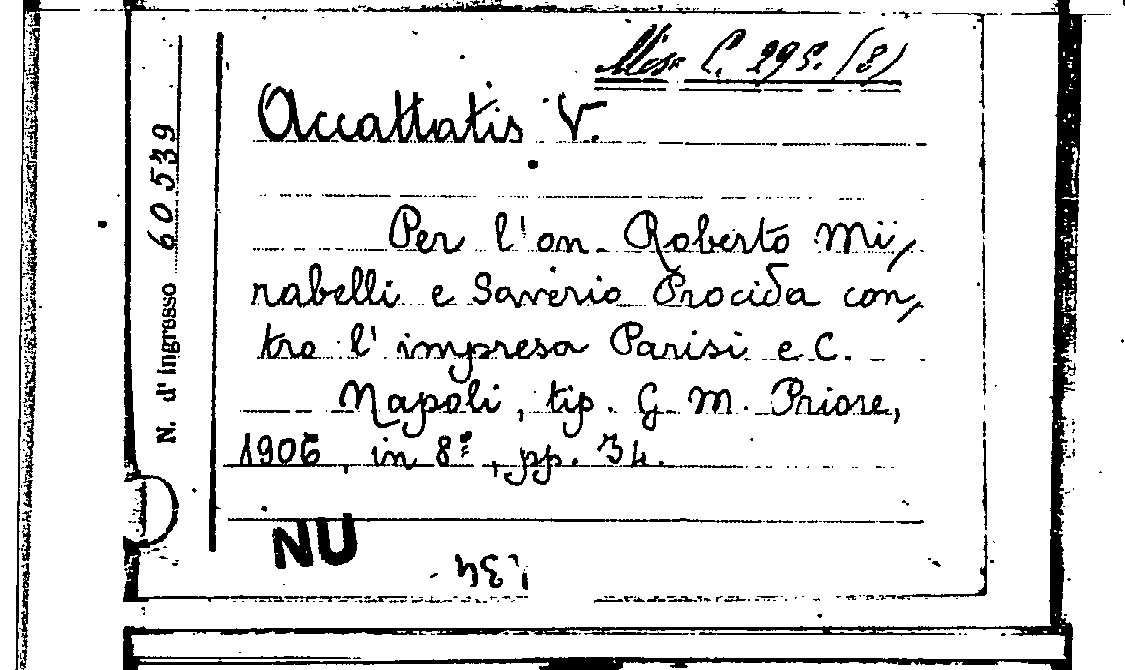 Misc. C. 295. (8)
Accattatis V.
Per l'on. Roberto Mi,
rabelli e Saverio Procida con,
tro l'impresa Parisi e C.
Napoli, tip. G. M. Priore,
1906, in 8º, pp. 34.
N. d'ingresso 60539
NU